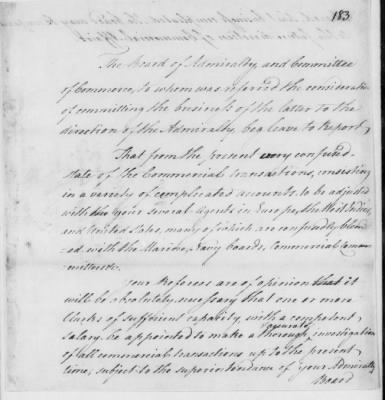 183
The Board of Admiralty, and Committee
of Commerce, to whom was referred the consideration
of committing the business of the latter to the
direction of the Admiralty, beg leave to Report,
That from the present very confused
state of the Commercial transactions, consisting
in a variety of complicated accounts, to be adjusted
with your several Agents in Europe, the West Indies,
and United States, many of which are confusedly blend-
-ed with the Marine, Navy boards, Commercial Com-
mittees &c.
Your Referees are of opinion that it
will be absolutely necessary that one or more
Clerks of sufficient capacity, with a competent
salary, be appointed to make a thorough accurate investigation
of all commercial transactions up to the present
time, subject to the superintendance of your Admiralty
Board